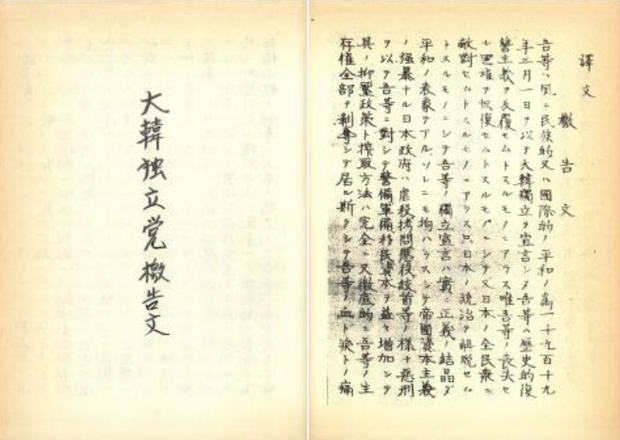 大韓独立党檄告文
譯文
檄告文
吾等ハ夙ニ民族的又ハ國際的ノ平和ノ為一千九百十九
年三月一日ヲ以テ大韓獨立ヲ宣言シタ吾等ハ歴史的復
讐主義ヲ反覆セムトスルモノニアラス唯吾等ノ喪失セ
ル國權ヲ恢復セムトスルモノニシテ又日本ノ全民衆ニ
敵對セムトスルモノニアラス只日本ノ統治ヲ解脱セム
トスルモノニシテ吾等ノ獨立宣言ハ實ニ正義ノ結晶ダ
平和ノ表象デアルソレニモ拘ハラスシテ帝國資本主義
ノ強暴ナル日本政府ハ虐殺拷問懲役絞首等ノ様ナ悪刑
ヲ以テ吾等ニ對シテ警備軍備移民資本ヲ益々増加シテ
其ノ抑壓政策ト搾取方法ハ完全ニ又徹底的ニ吾等ノ生
存權全部ヲ剥奪シテ居ル斯クシテ吾等ノ血ト涙トノ痛